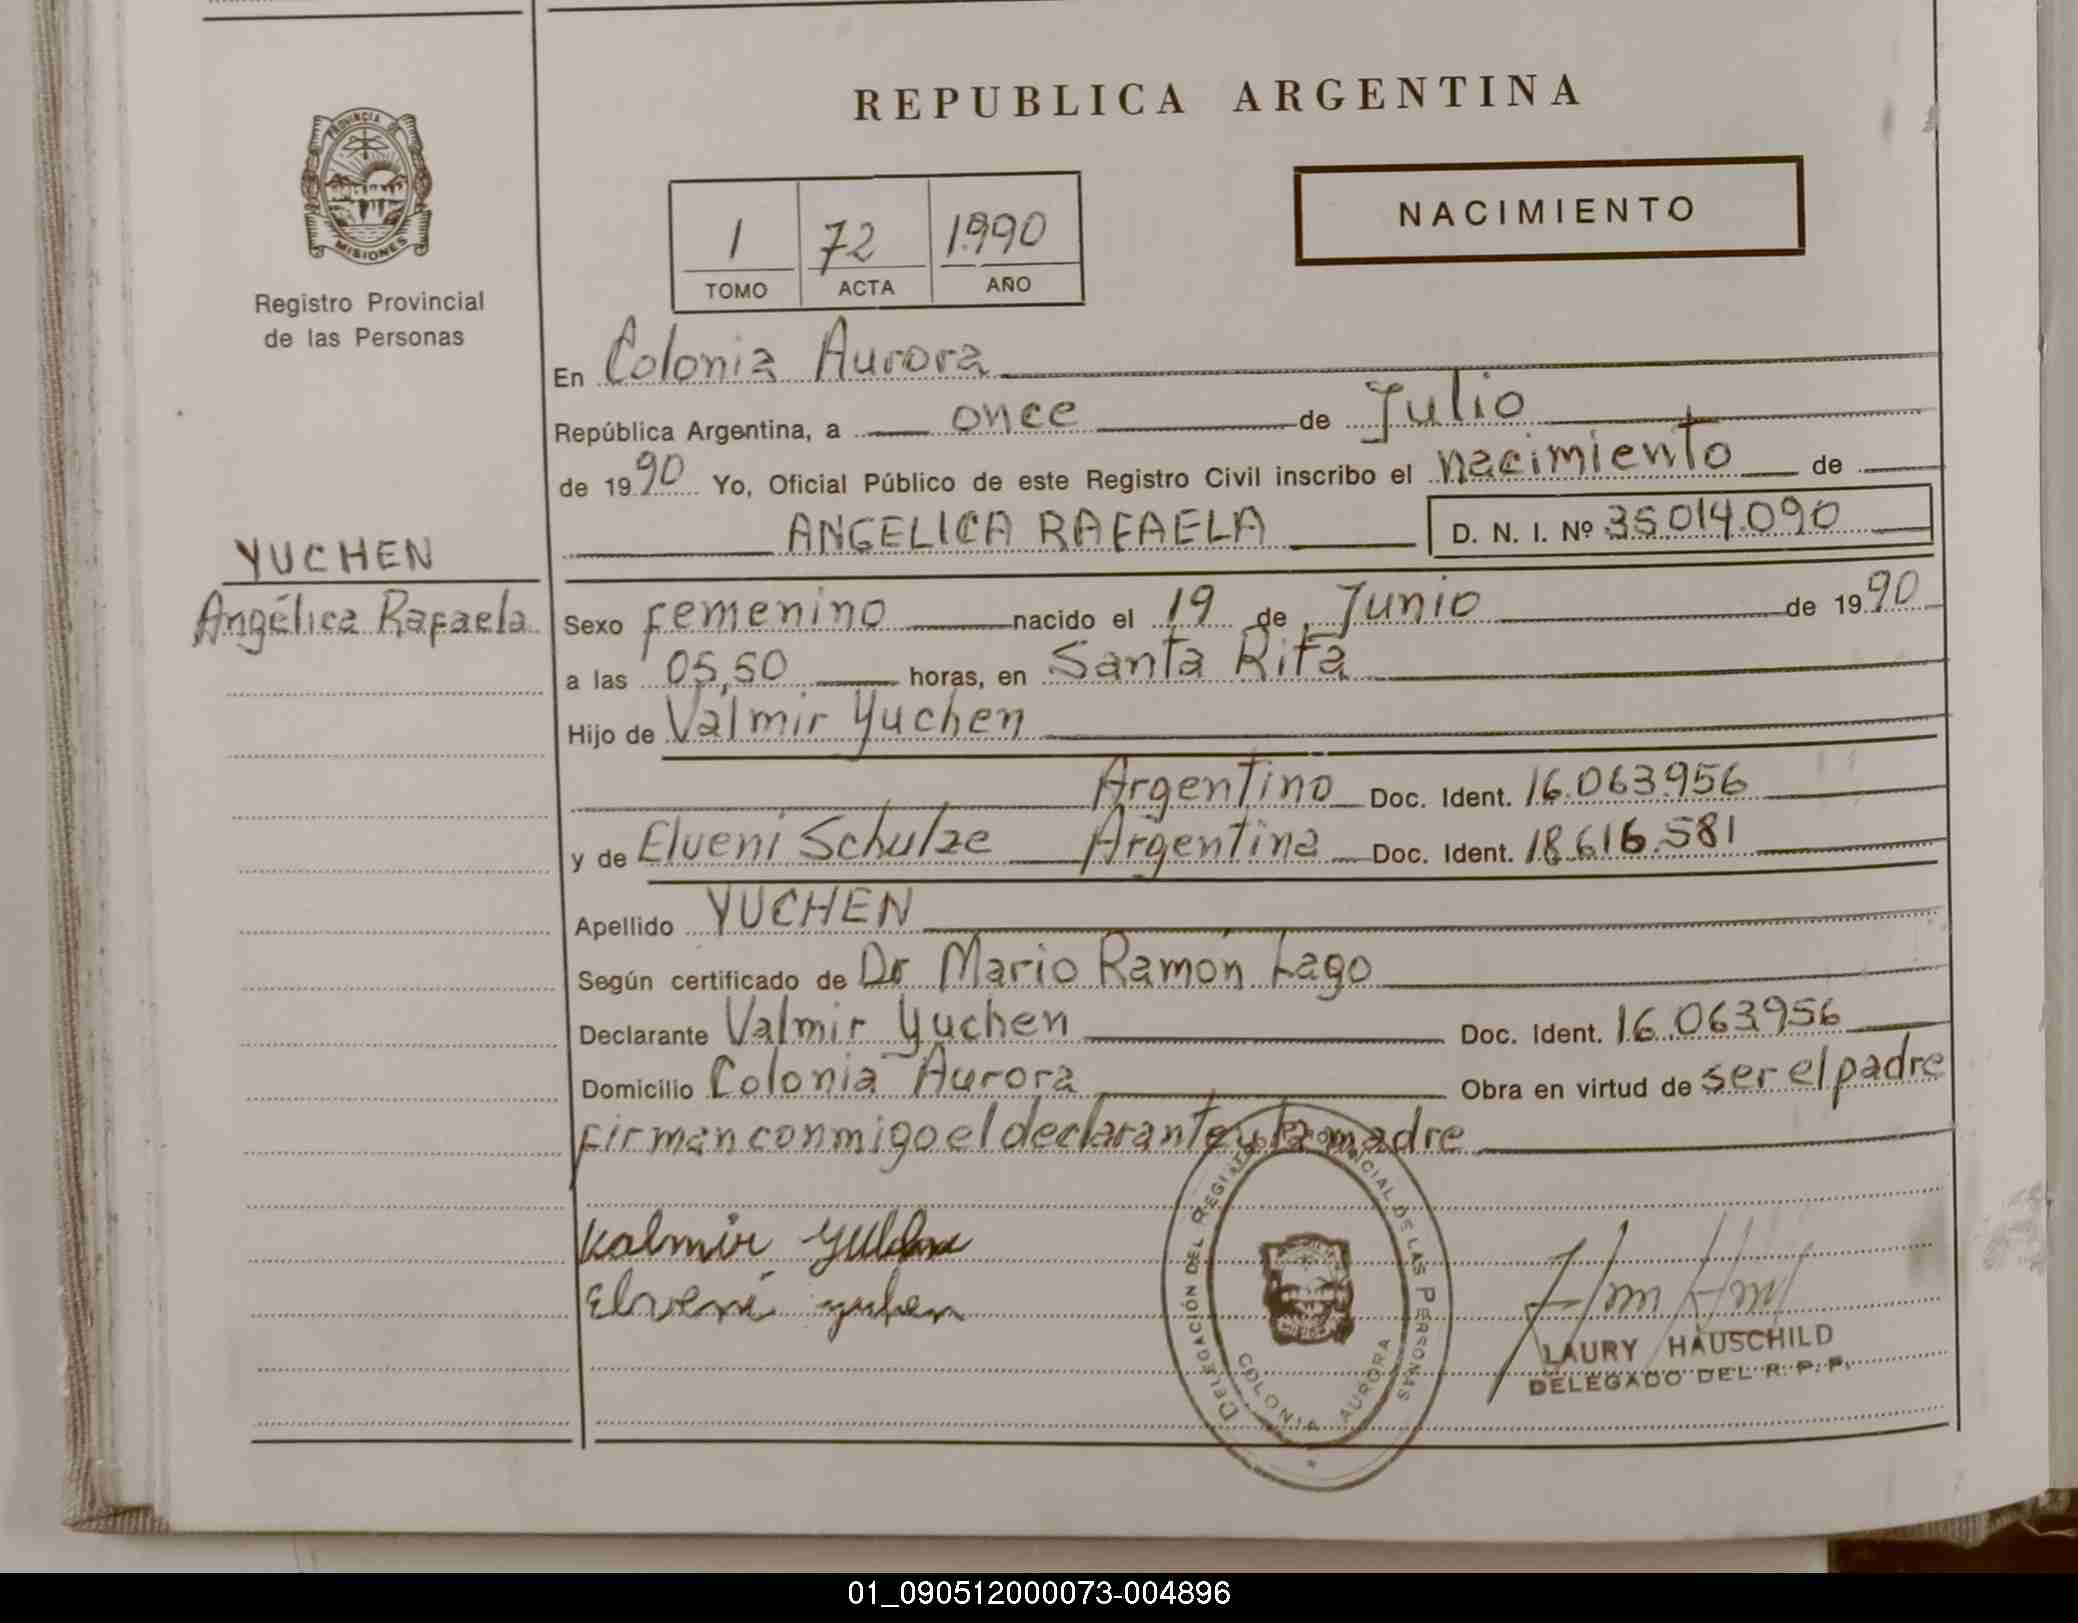 REPUBLICA ARGENTINA
PROVINCIA DE
MISIONES
Registro Provincial
de las Personas
1 72 1990
TOMO ACTA AÑO
NACIMIENTO
En Colonia Aurora
República Argentina, a once de Julio
de 1990 Yo, Oficial Público de este Registro Civil inscribo el nacimiento de
ANGELICA RAFAELA D. N. I. Nº 35.014.090
YUCHEN
Angélica Rafaela
Sexo femenino nacido el 19 de Junio de 1990
a las 05,50 horas, en Santa Rita
Hijo de Valmir Yuchen
Argentino Doc. Ident. 16.063.956
y de Elveni Schulze Argentina Doc. Ident. 18.616.581
Apellido YUCHEN
Según certificado de Dr Mario Ramón Lago
Declarante Valmir Yuchen Doc. Ident. 16.063.956
Domicilio Colonia Aurora Obra en virtud de ser el padre
firman conmigo el declarante y la madre
Elveni
DELEGACIÓN DEL REGISTRO PROVINCIAL DE LAS PERSONAS
COLONIA AURORA
LAURY HAUSCHILD
DELEGADO DEL R. P. P.
01_090512000073-004896